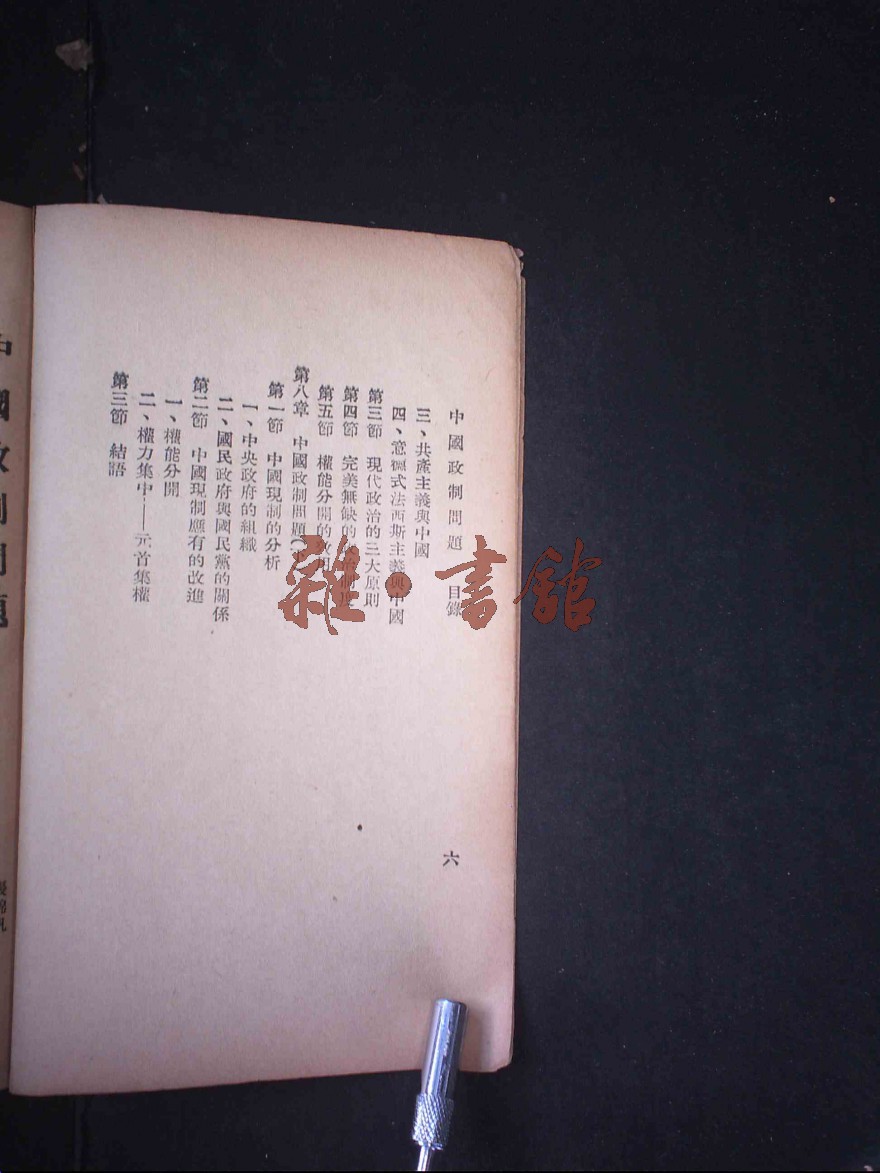 中國政制問題 目錄
三、共產主義與中國
四、意德式法西斯主義與中國
第三節 現代政治的三大原則
第四節 完美無缺的政治制度
第五節 權能分開的效用
第八章 中國政制問題
第一節 中國現制的分析
一、中央政府的組織
二、國民政府與國民黨的關係
第二節 中國現制應有的改進
一、權能分開
二、權力集中——元首集權
第三節 結語
六
中國政制問題
雜·書館